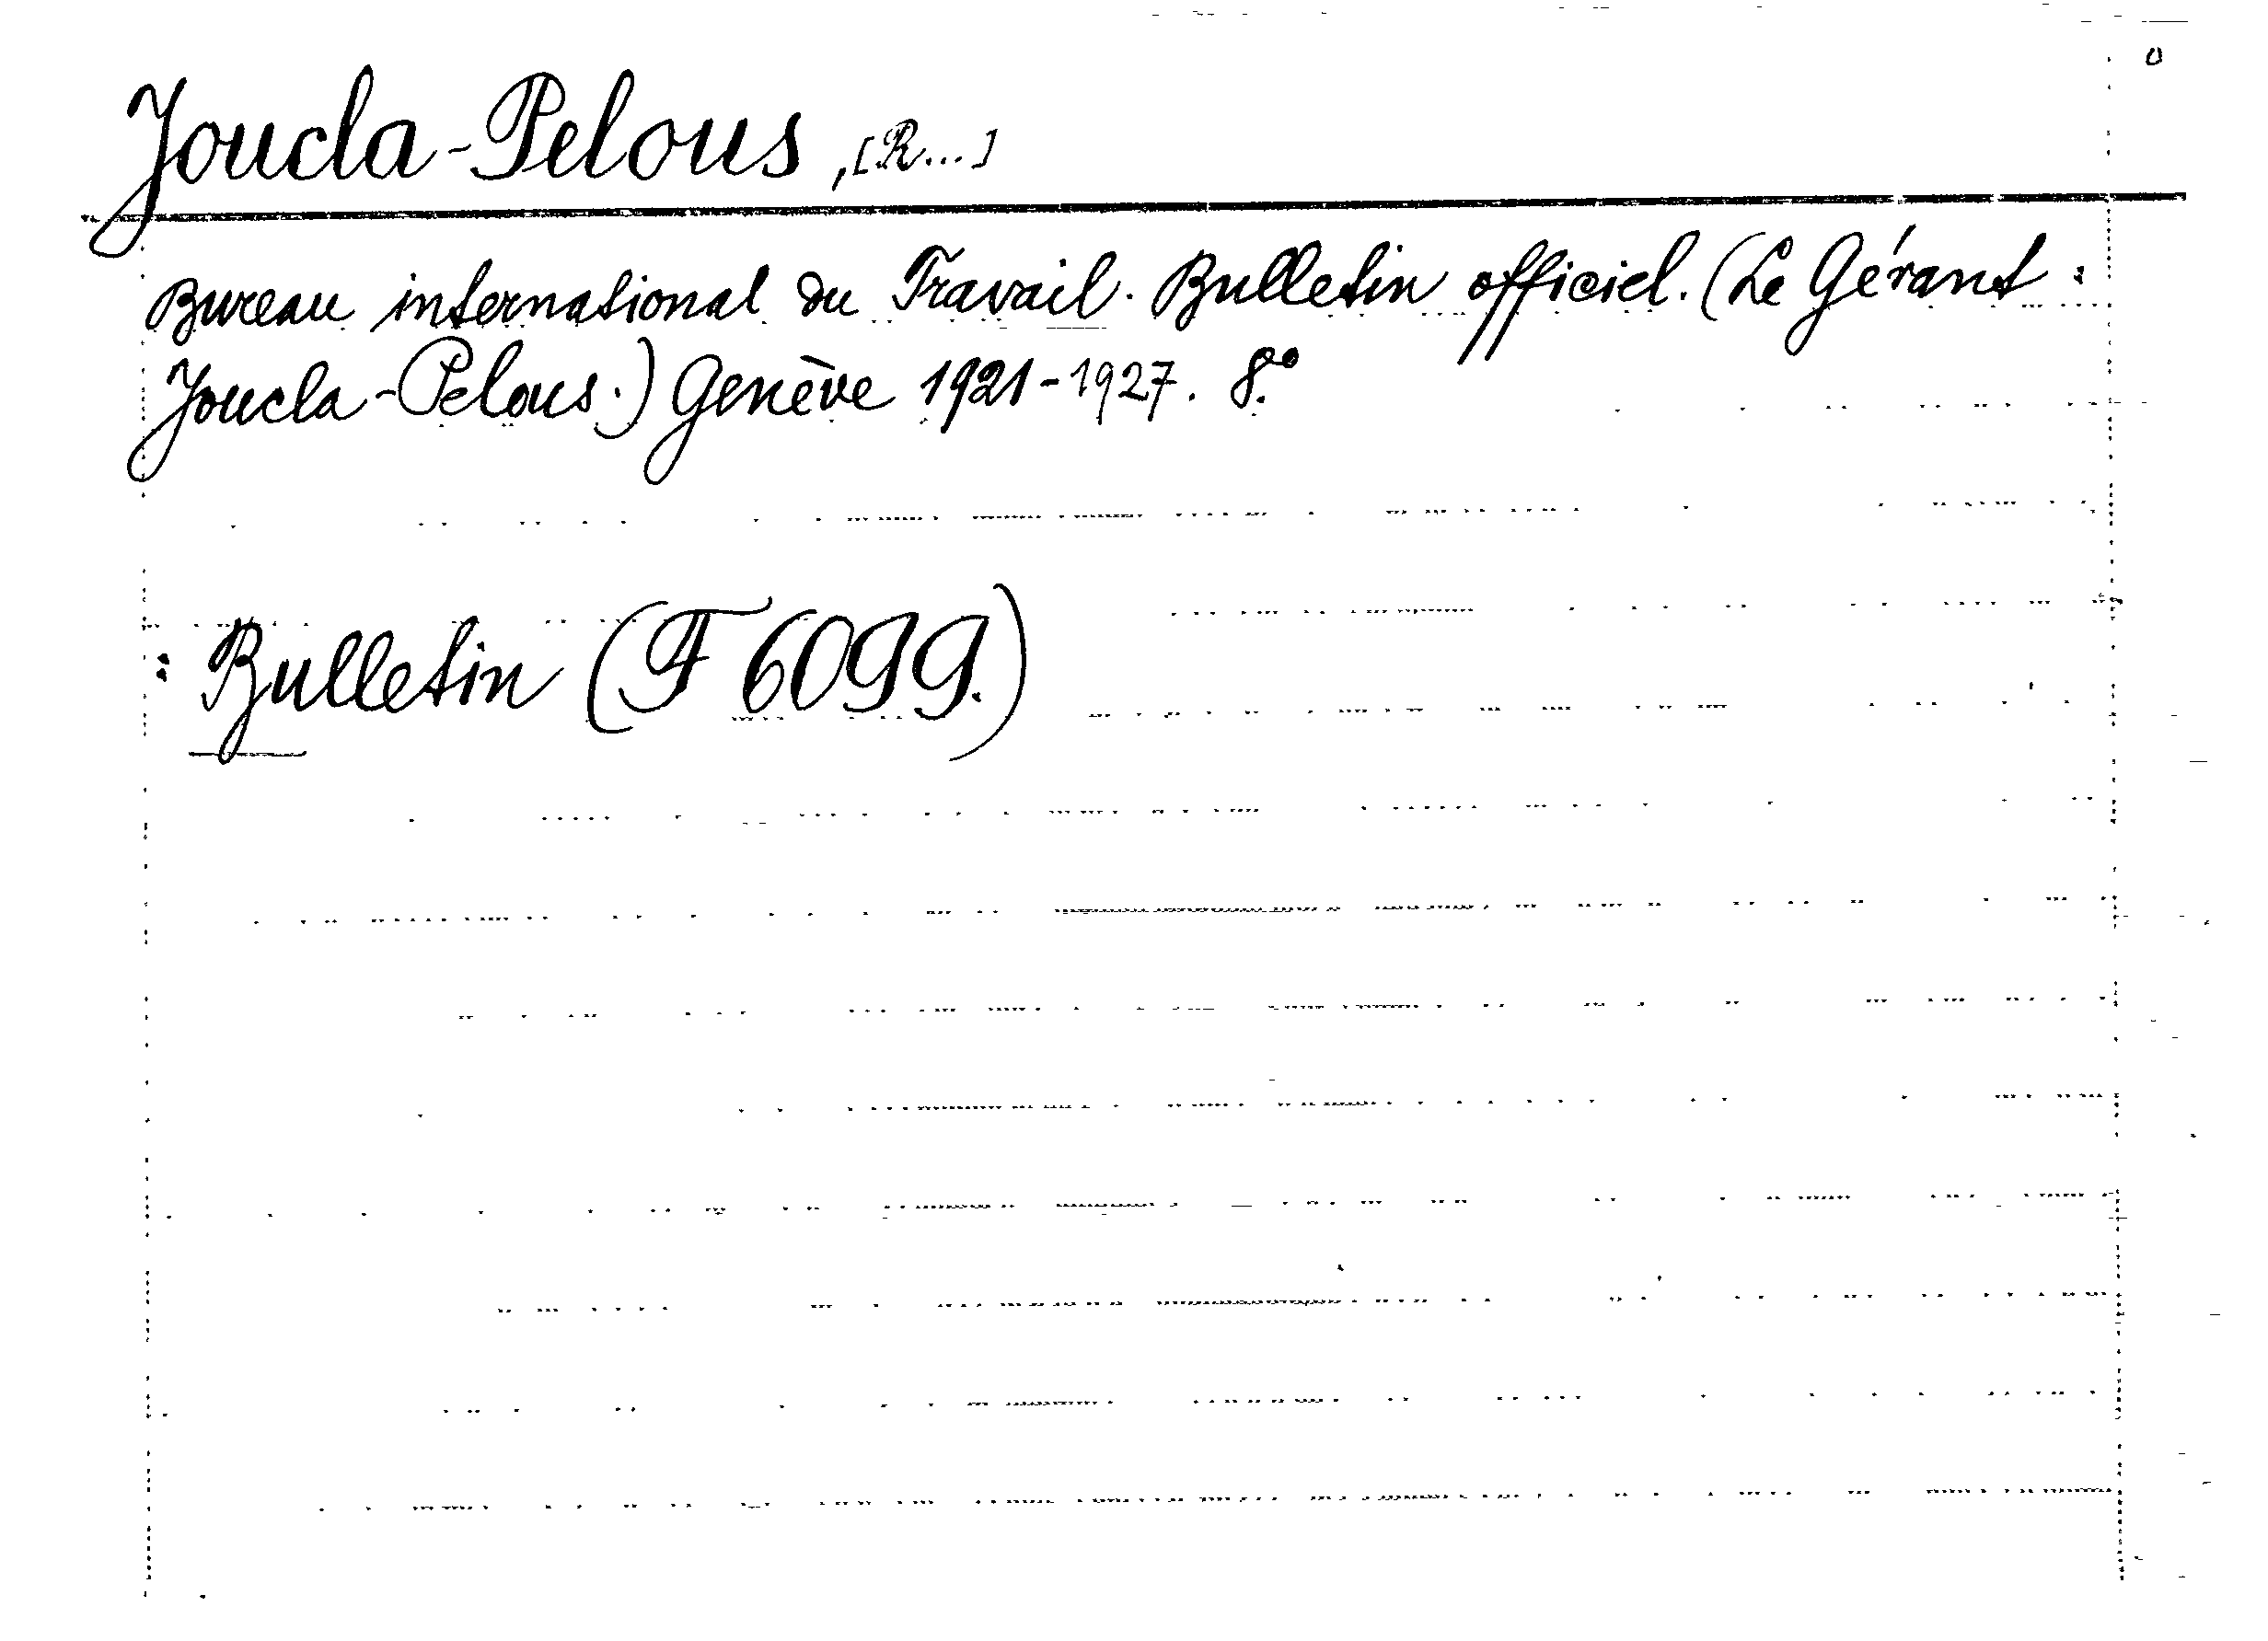 Joucla-Pelous, [R...]
Bureau international du Travail. Bulletin officiel. (Le Gérant :
Joucla-Pelous.) Genève 1921-1927. 8.°
: Bulletin (F 6099.)